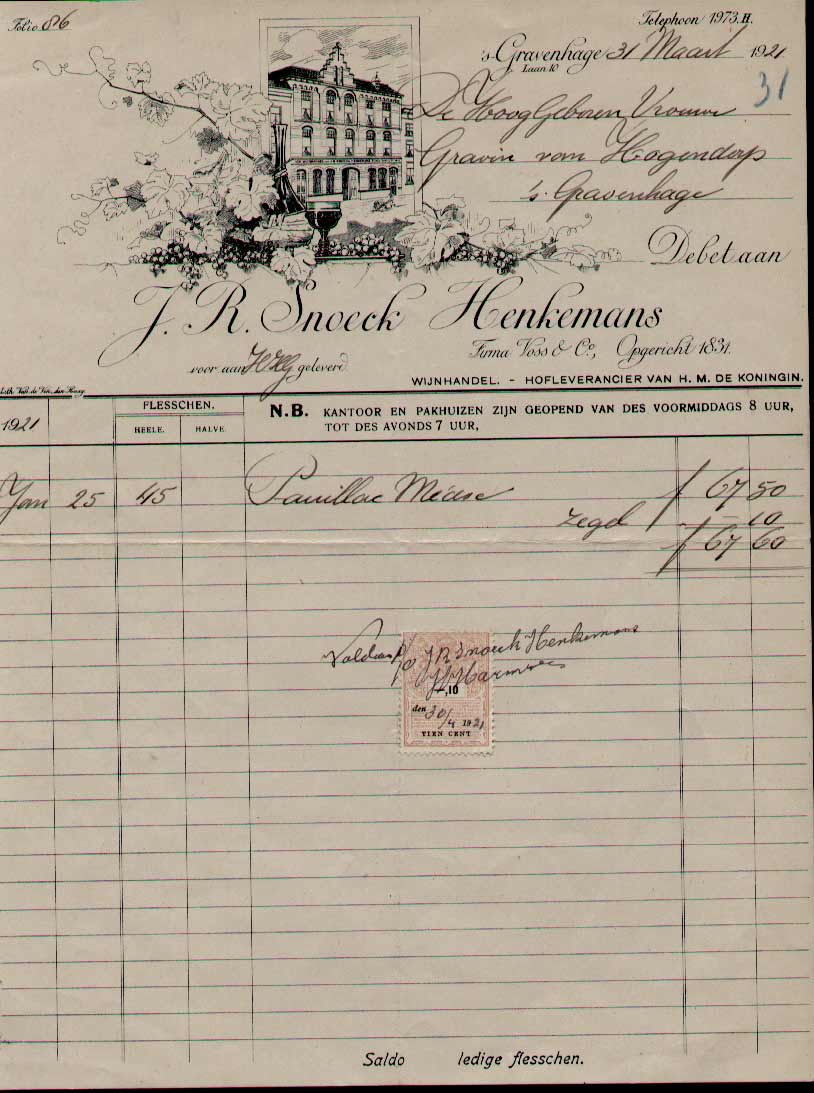 Folio 86
Telephoon 1973.H.
's-Gravenhage 31 Maart 1921
Laan 10
31
De HoogGeboren Vrouwe
Gravin van Hogendorp
's Gravenhage
Debet aan
J. R. Snoeck Henkemans
Firma Voss & Co., Opgericht 1831.
voor aan HHG geleverd
WIJNHANDEL. - HOFLEVERANCIER VAN H. M. DE KONINGIN.
1921
FLESSCHEN.
HEELE. HALVE.
N.B. KANTOOR EN PAKHUIZEN ZIJN GEOPEND VAN DES VOORMIDDAGS 8 UUR,
TOT DES AVONDS 7 UUR,
Jan 25 45 Pauillac Médoc f 67 50
zegel - 10
f 67 60
Voldaan p/o J R Snoeck Henkemans
,10
den 30/4 1921
TIEN CENT
Saldo ledige flesschen.